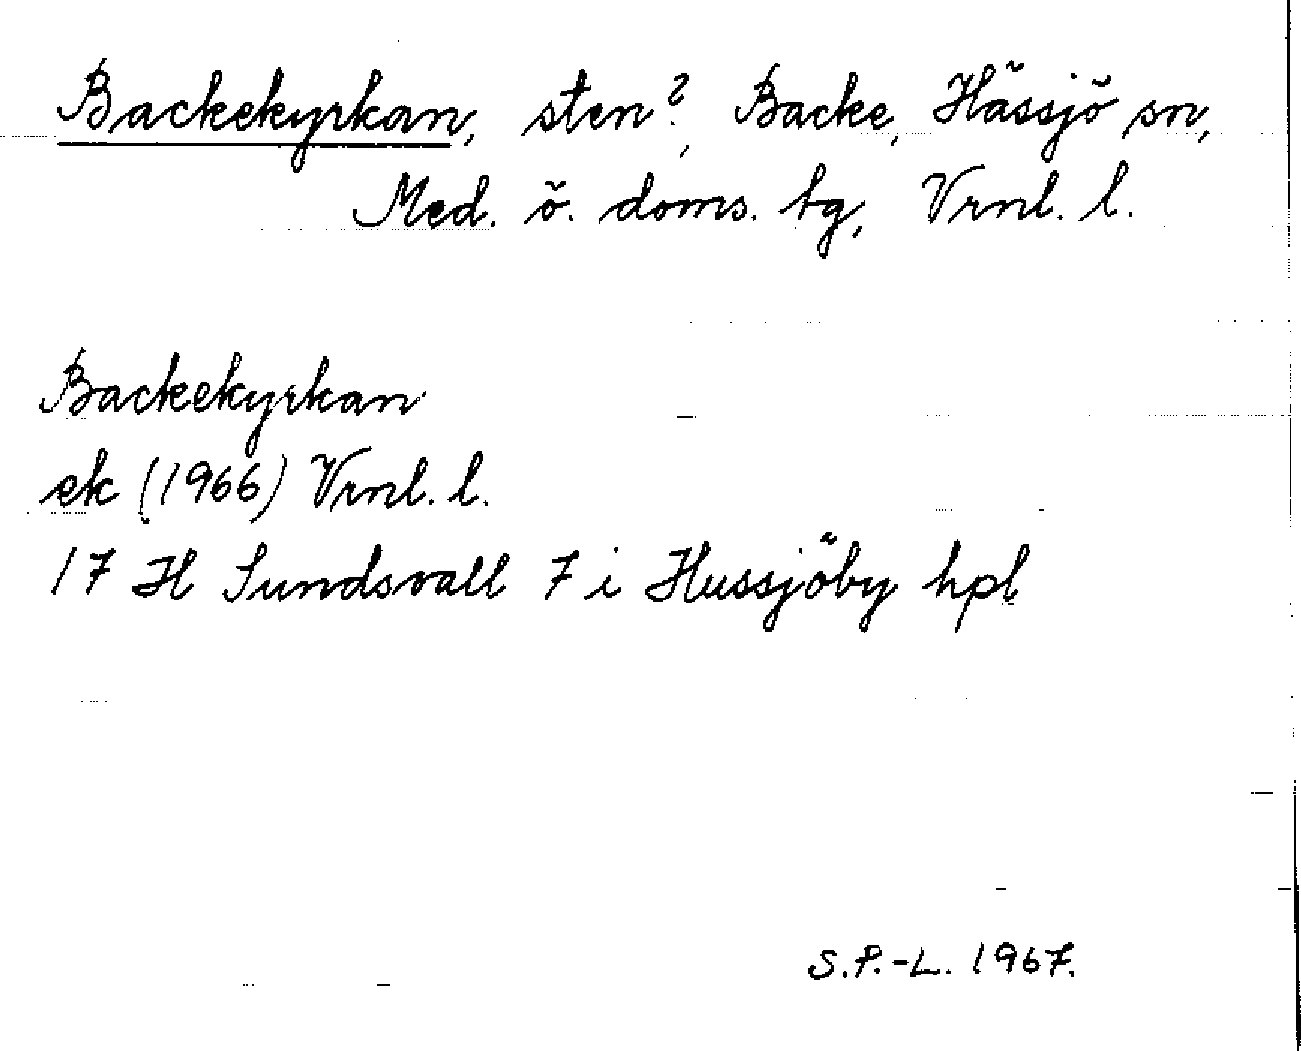 Backekyrkan, sten?, Backe, Hässjö sn,
Med. ö. doms. tg, Vrnl. l.
Backekyrkan
ek (1966) Vrnl. l.
17 H Sundsvall 7 i Hussjöby hpl
S.P.-L. 1967.